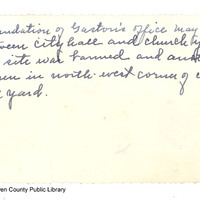 undation of Gaston's office may
ween City hall and church
site was burned and an
en in north-west corner of
yard.
ven County Public Library